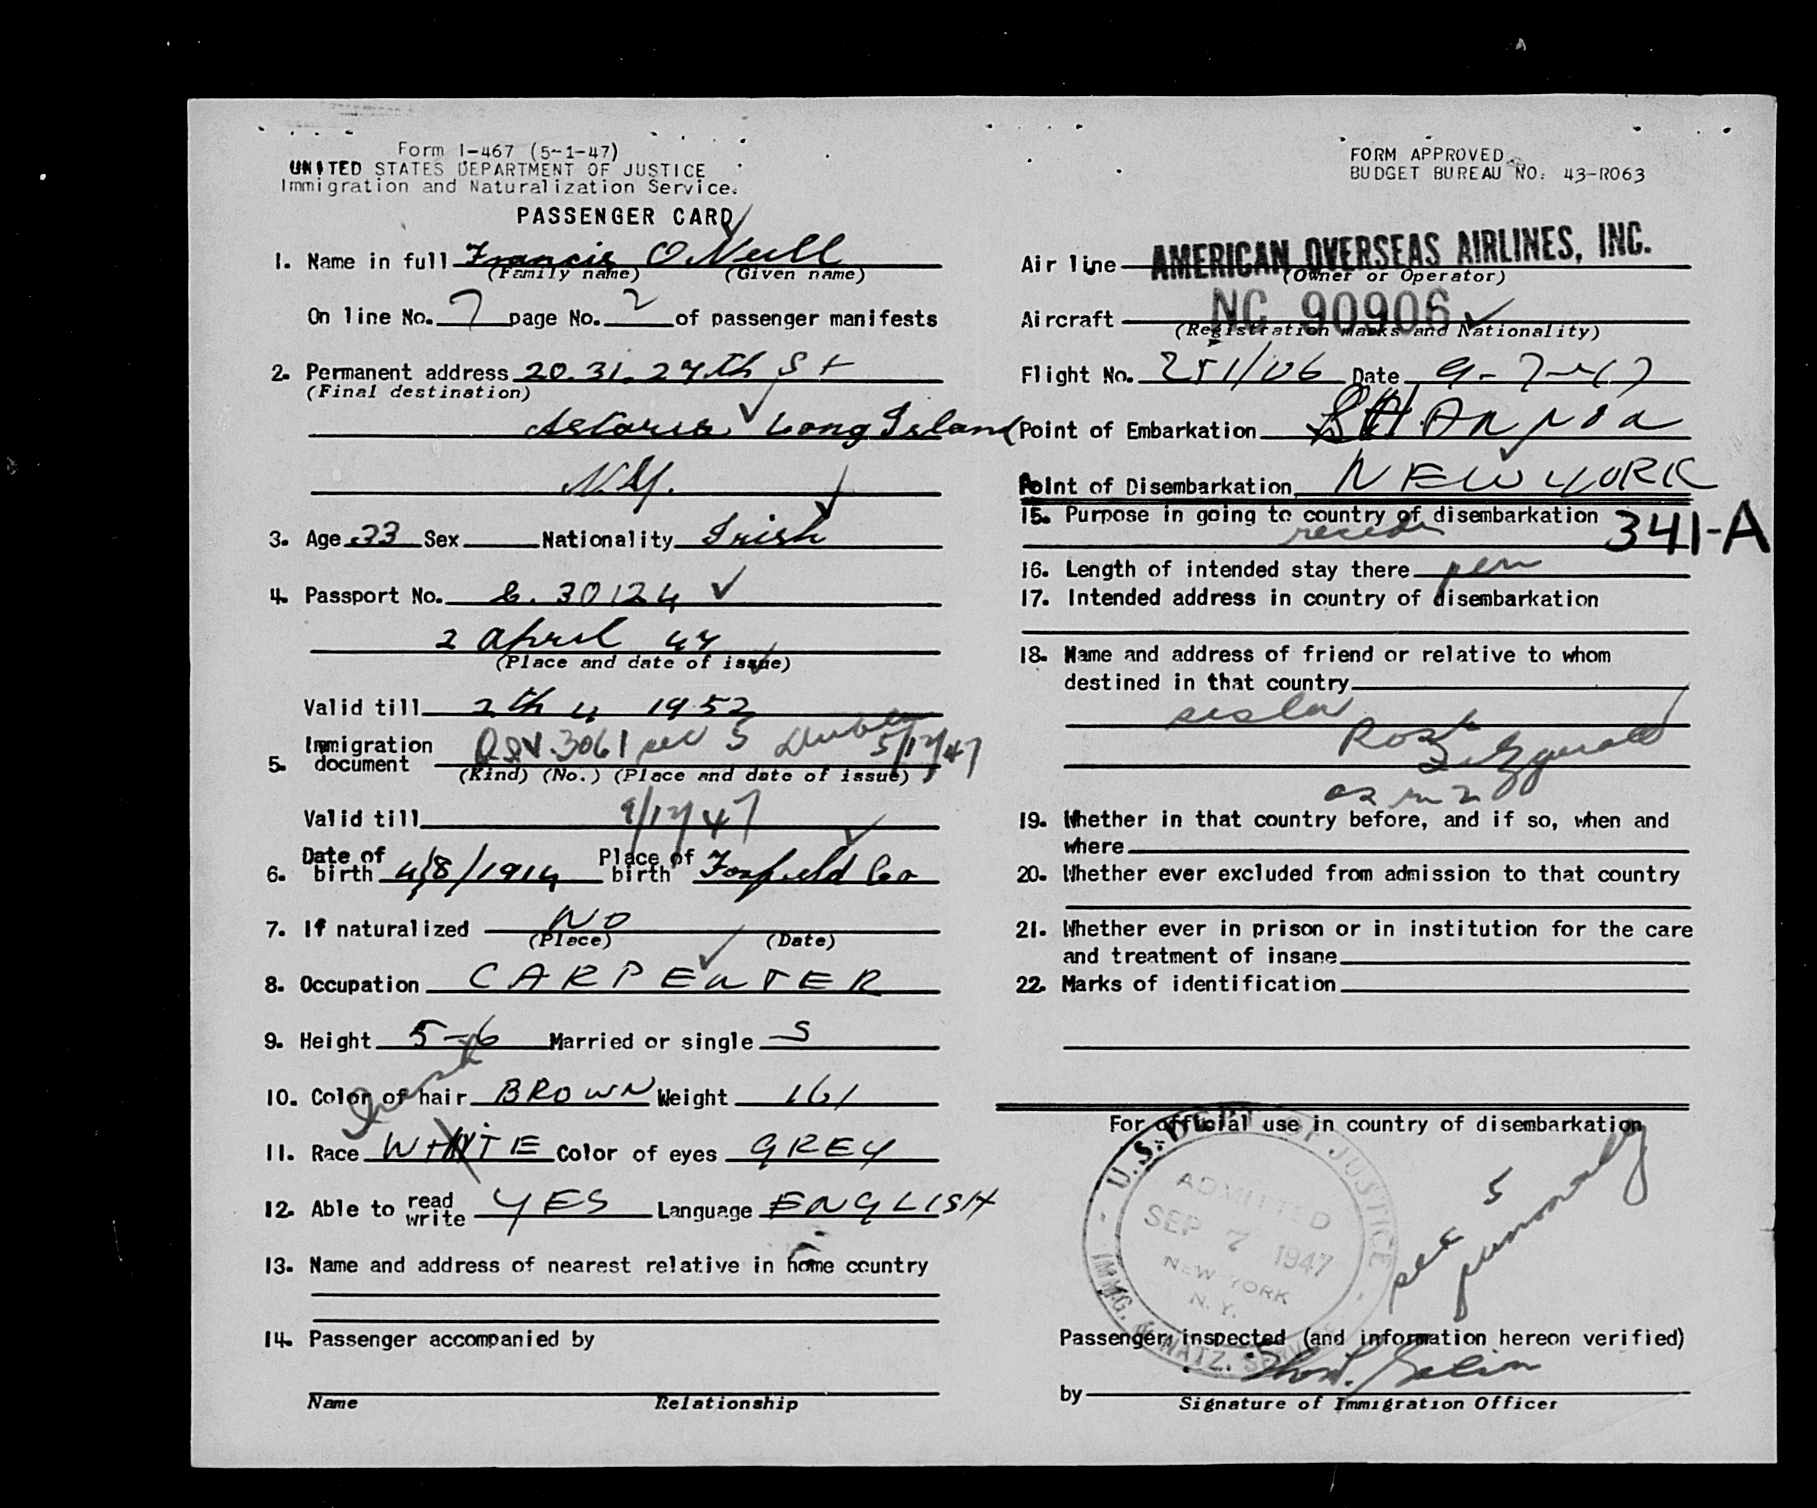 Form I-467 (5-1-47)
UNITED STATES DEPARTMENT OF JUSTICE
Immigration and Naturalization Service.
PASSENGER CARD
FORM APPROVED
BUDGET BUREAU NO. 43-R063
1. Name in full Francis O Neill
(Family name) (Given name)
On line No. 7 page No. 2 of passenger manifests
2. Permanent address 20.31.27th St
(Final destination)
Astoria Long Island
N.Y.
3. Age 33 Sex Nationality Irish
4. Passport No. 30124
2 April 47
(Place and date of issue)
Valid till 2th 4 1952
5. Immigration document 3061 sec 5 Dublin 5/12/47
(Kind) (No.) (Place and date of issue)
Valid till 9/12/47
6. Date of birth 4/8/1914 Place of birth Co
7. If naturalized NO
(Place) (Date)
8. Occupation CARPENTER
9. Height 5-6 Married or single S
10. Color of hair BROWN Weight 161
Irish
11. Race WHITE Color of eyes GREY
12. Able to read write YES Language ENGLISH
13. Name and address of nearest relative in home country
14. Passenger accompanied by
Name Relationship
Air line AMERICAN OVERSEAS AIRLINES, INC.
(Owner or Operator)
Aircraft NC 90906
(Registration marks and Nationality)
Flight No. Date 9-7-47
Point of Embarkation SHANNON
Point of Disembarkation NEW YORK
15. Purpose in going to country of disembarkation
reside 341-A
16. Length of intended stay there perm
17. Intended address in country of disembarkation
18. Name and address of friend or relative to whom
destined in that country
sister
Rose
Fitzgerald
as in 2
19. Whether in that country before, and if so, when and
where
20. Whether ever excluded from admission to that country
21. Whether ever in prison or in institution for the care
and treatment of insane
22. Marks of identification
For official use in country of disembarkation
U.S. DEPT. OF JUSTICE
ADMITTED
SEP 7 1947
NEW YORK
N.Y.
IMMG. & NATZ. SERVICE
sec 5
Passenger inspected (and information hereon verified)
by
Signature of Immigration Officer